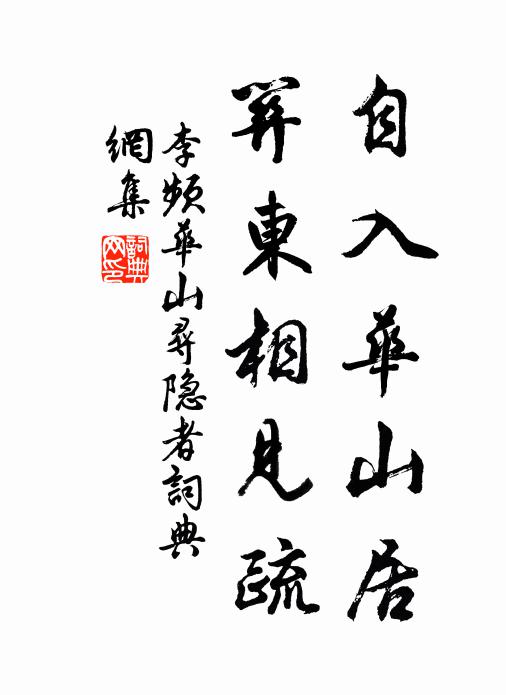 自入華山居
關東相見疏
李頻華山尋隐者詞典
網集
詞典
网印